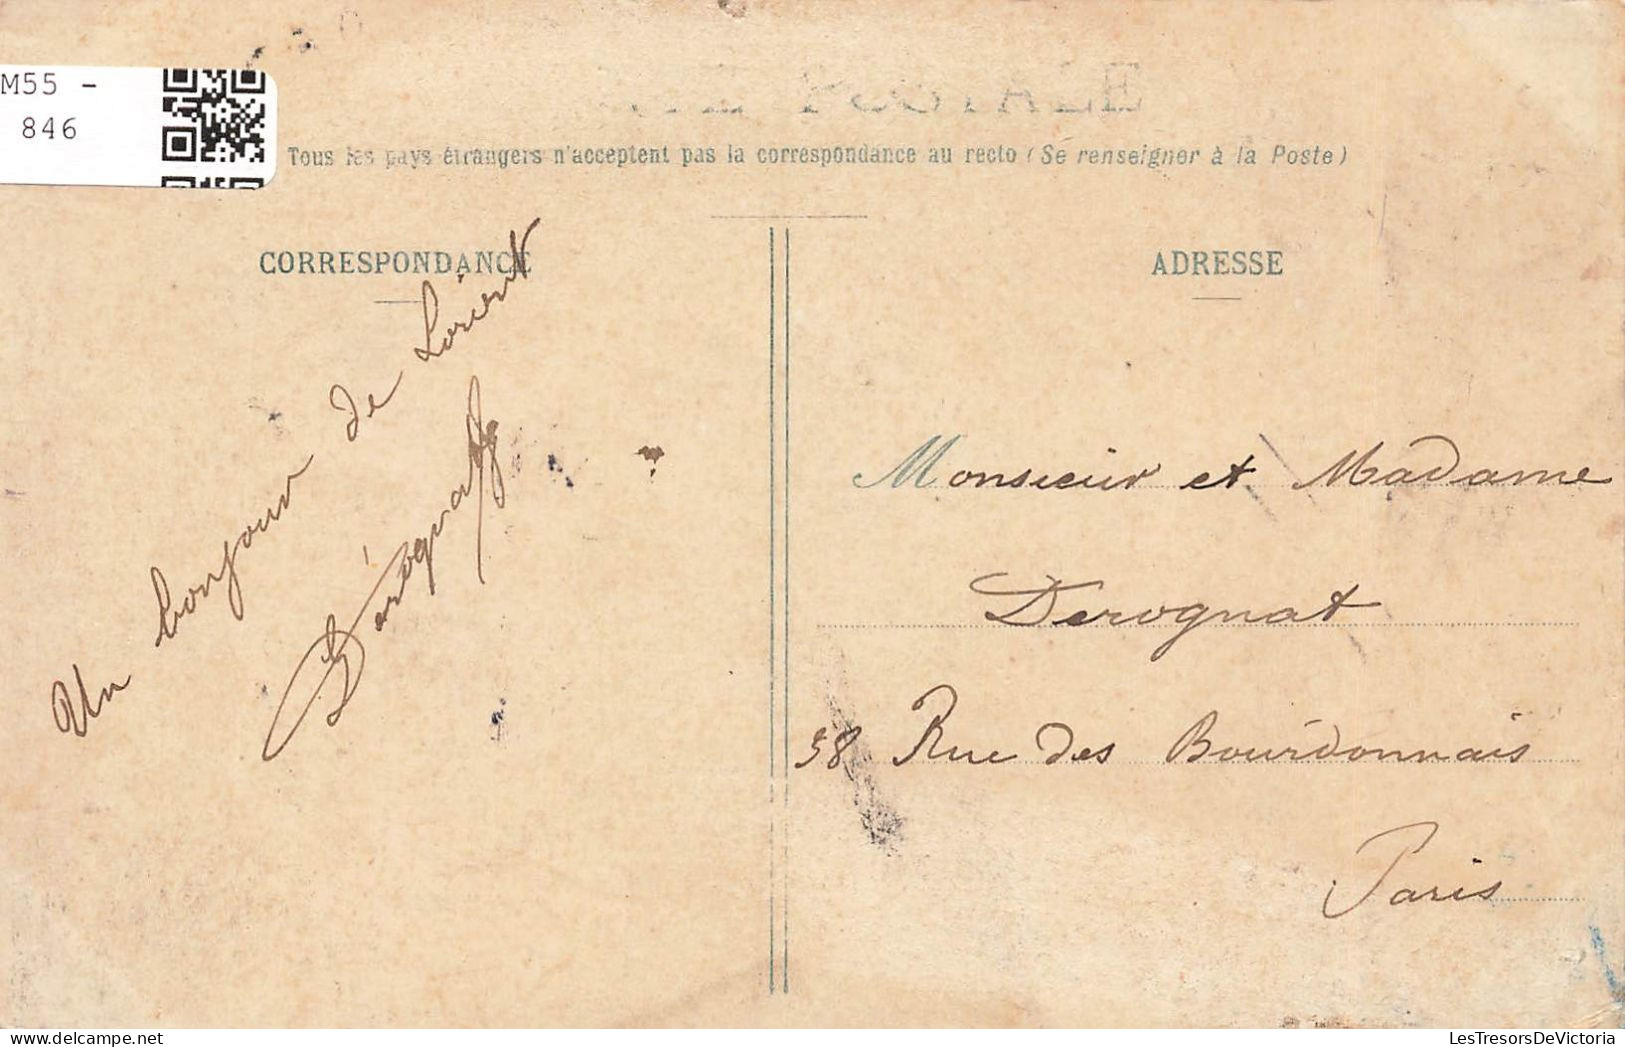 M55 -
846
Tous les pays étrangers n'acceptent pas la correspondance au recto (Se renseigner à la Poste)
CORRESPONDANCE
Un bonjour de Lorient
Derognat
ADRESSE
Monsieur et Madame
Derognat
58 Rue des Bourdonnais
Paris
LesTresorsDeVictoria.com